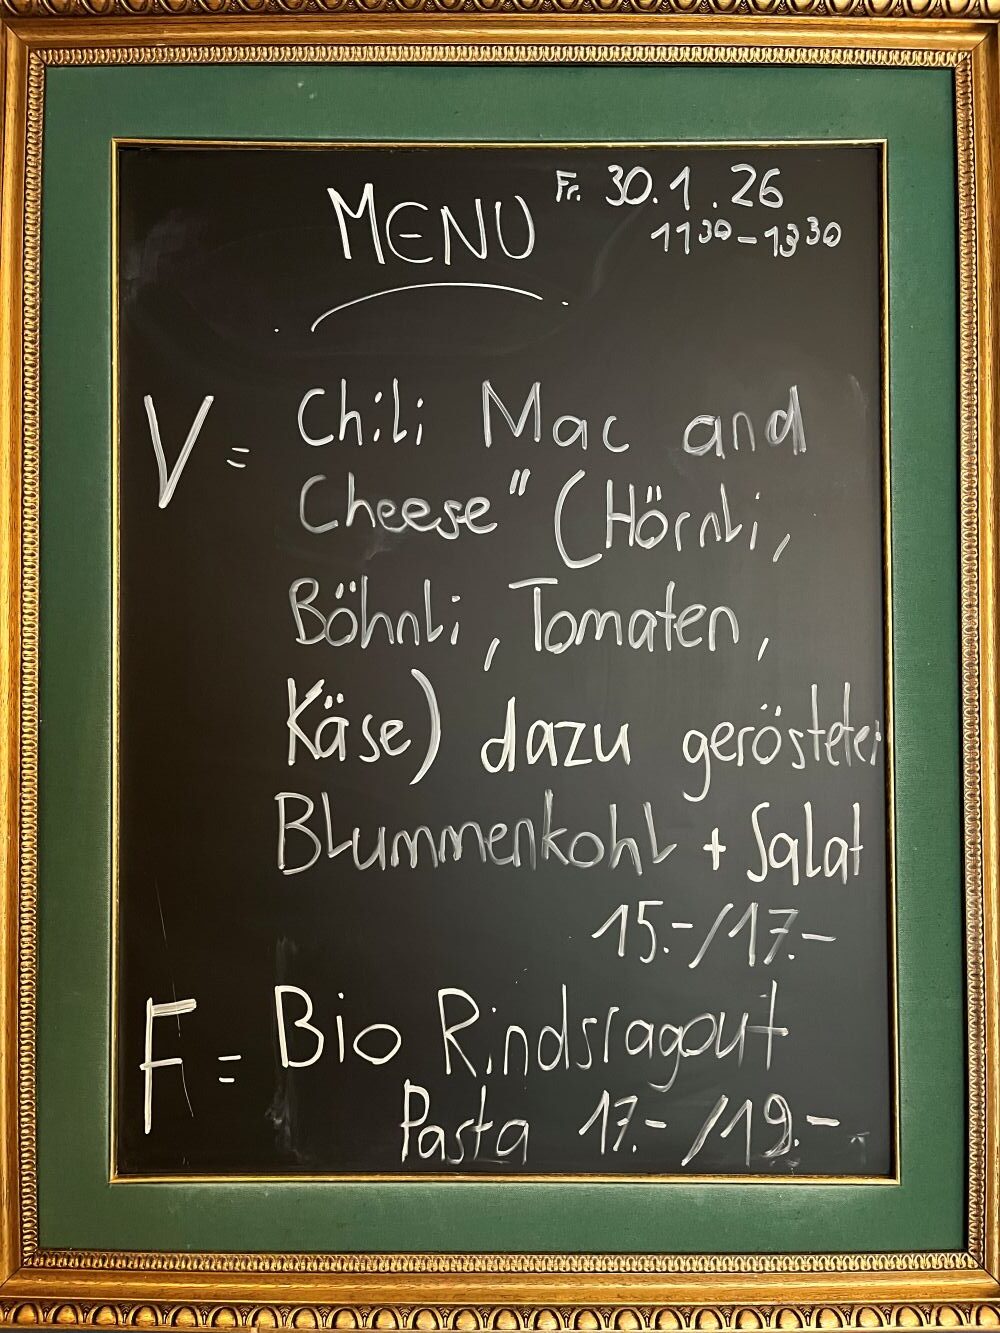 MENU Fr. 30.1.26
11 30 - 13 30
V = Chili Mac and
Cheese" (Hörnli,
Böhnli, Tomaten,
Käse) dazu gerösteter
Blummenkohl + Salat
15.-/17.-
F = Bio Rindsragout
Pasta 17.-/19.-